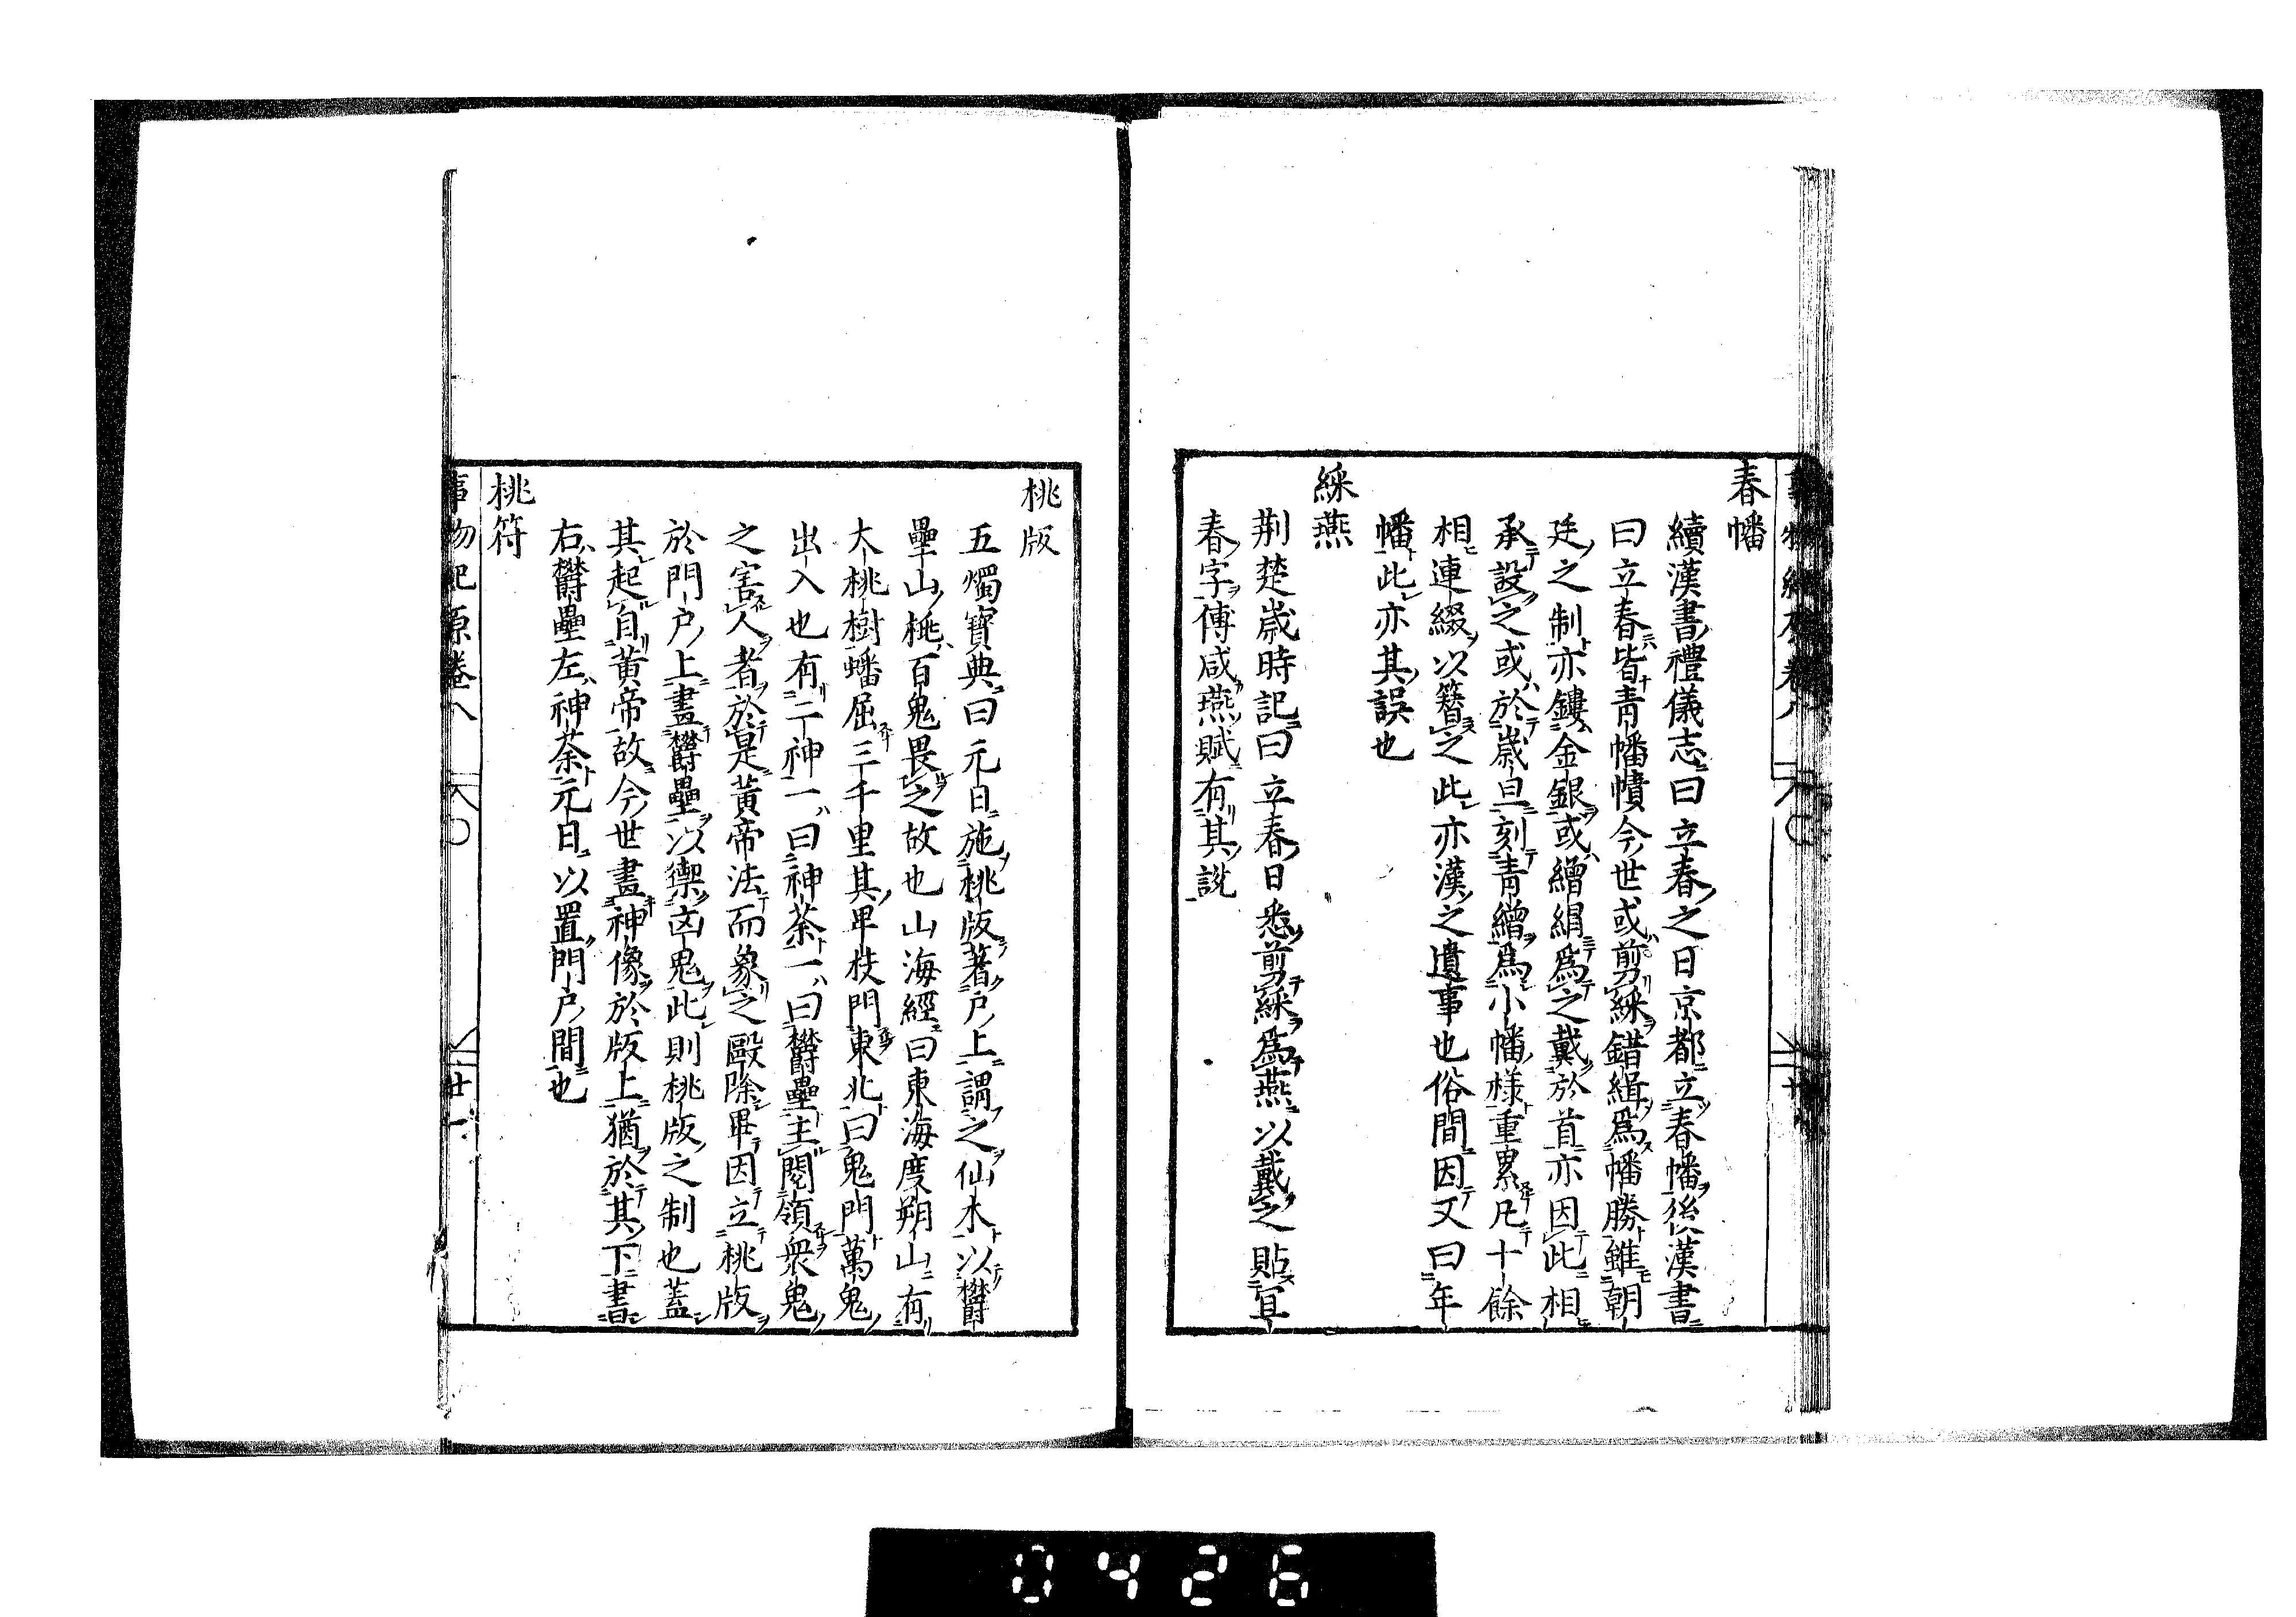 春幡
續漢書禮儀志曰立春之日京都立春幡後漢書
曰立春皆青幡幘今世或剪綵錯緝爲幡勝雖朝
廷之制亦鏤金銀或繒絹爲之戴於首亦因此相
承設之或於歲旦刻青繒爲小幡樣重累凡十餘
相連綴以簪之此亦漢之遺事也俗間因又曰年
幡此亦其誤也
綵燕
荆楚歲時記曰立春日悉剪綵爲燕以戴之貼宜
春字傅咸燕賦有其說
桃版
五燭寶典曰元日施桃版著戶上謂之仙木以欎
壘山桃百鬼畏之故也山海經曰東海度朔山有
大桃樹蟠屈三千里其卑枝門東北曰鬼門萬鬼
出入也有二神一曰神荼一曰欎壘主閱領衆鬼
之害人者於是黃帝法而象之毆除畢因立桃版
於門戶上畫欎壘以禦凶鬼此則桃版之制也蓋
其起自黃帝故今世畫神像於版上猶於其下書
右欎壘左神荼元日以置門戶間也
桃符
事物紀原卷八
廿一
0426